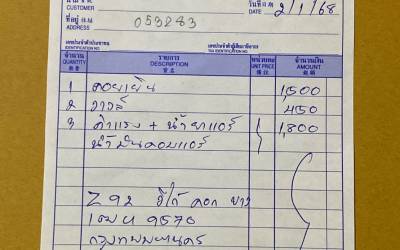 วันที่
DATE 2/1/68
ที่อยู่
ADDRESS 053283
เลขประจำตัวประชาชน
IDENTIFICATION NO.
เลขประจำตัวผู้เสียภาษีอากร
TAX IDENTIFICATION NO.
จำนวน รายการ หน่วยละ จำนวนเงิน
QUANTITY DESCRIPTION UNIT PRICE AMOUNT
1 คอยเย็น 1,500
2 วาวล์ 450
3 ค่าแรง + น้ำยาแอร์ 1,800
น้ำมันคอมแอร์
Z 92 อีโก้ คอก ขาว
1ฒฆ 9570
กรุงเทพมหานคร